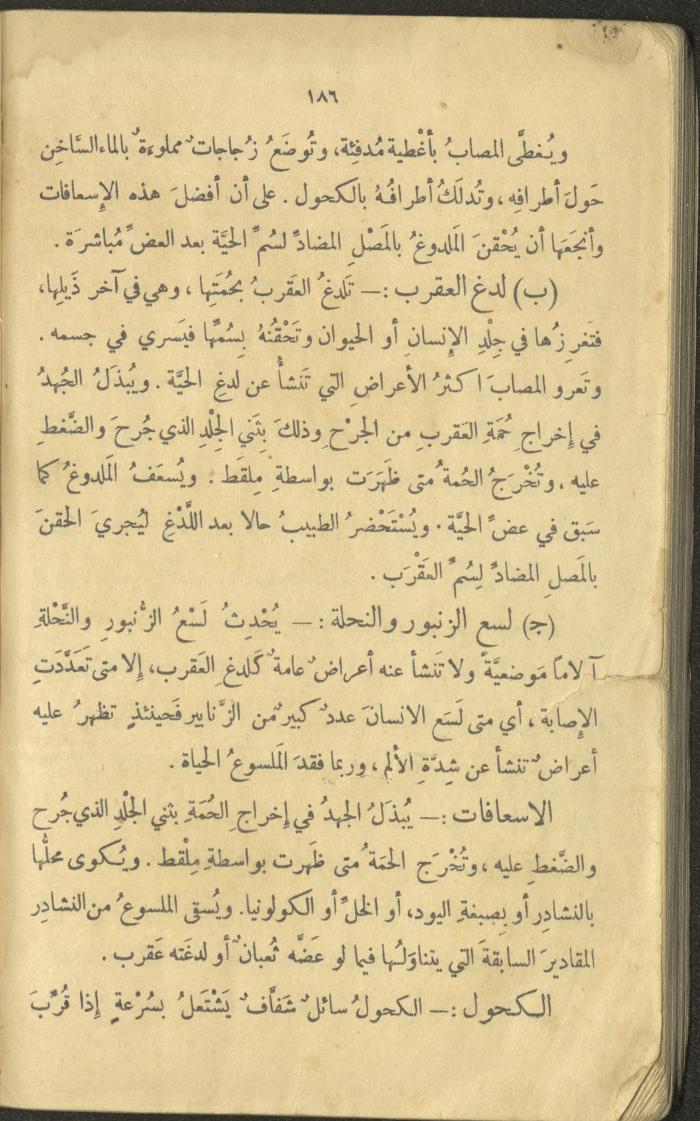 ١٨٦
ويُغطَّى المصابُ بأَغْطية مُدفِئة، وتُوضَعُ زُجاجاتٌ مملوءةٌ بالماء السَّاخِن
حَولَ أطرافِه، وتُدلَكُ أطرافُهُ بالكحول. على أن أفضلَ هذه الإِسعافات
وأنجَعَها أن يُحْقنَ المَلدوغُ بالمَصْلِ المضادِّ لسُمِّ الحيَّة بعد العضِّ مُباشرَة.
(ب) لدغ العقرب :— تَلدغُ العَقربُ بحُمَتِها، وهي في آخر ذَيلِها،
فتَغرِزُها في جِلْدِ الإِنسانِ أو الحيوان وتَحْقُنُهُ بِسُمِّها فيَسري في جسمه.
وتَعرو المصابَ اكثرُ الأعراضِ التي تَنشأُ عن لدغِ الحيَّة. ويُبذَلُ الجُهدُ
في إِخراجِ حُمَةِ العَقربِ من الجرْحِ وذلكَ بِثَني الجِلْدِ الذي جُرحَ والضَّغطِ
عليه، وتُخْرَجُ الحُمةُ متى ظَهَرَت بواسطةِ مِلقَط. ويُسعَفُ المَلدوغُ كما
سَبق في عضِّ الحيَّة. ويُسْتَحْضرُ الطبيبُ حالا بعد اللَّدْغِ ليُجريَ الحَقنَ
بالمَصلِ المضادِّ لِسُمِّ العَقْرَب.
(ج) لسع الزنبور والنحلة :— يُحْدِثُ لَسْعُ الزُّنبورِ والنَّحْلةِ
آلاماً مَوضعيَّةً ولا تَنشأ عنه أعراضٌ عامةٌ كَلدغِ العَقرب، إِلا متى تَعَدَّدَتِ
الإِصابة، أي متى لَسَع الانسانَ عددٌ كبيرٌ من الزَّنابير فَحينئذٍ تظهرُ عليه
أعراضٌ تنشأ عن شِدَّةِ الألم، وربما فقدَ المَلسوعُ الحياة.
الاسعافات :— يُبذَلُ الجهدُ في إِخراجِ الحُمَةِ بثني الجلْدِ الذي جُرح
والضَّغطِ عليه، وتُخْرَج الحمَةُ متى ظَهرت بواسطةِ مِلْقط. ويُكوى محلُّها
بالنشادِر أو بِصبغةِ اليود، أو الخلِّ أو الكولونيا. ويُسقى الملسوعُ من النشادِر
المقاديرَ السابقةَ التي يتناوَلُها فيما لو عَضَّه ثُعبانٌ أو لدغَته عَقرب.
الكحول :— الكحولُ سائلٌ شَفَّافٌ يَشْتَعلُ بسُرْعةٍ إِذا قُرِّبَ